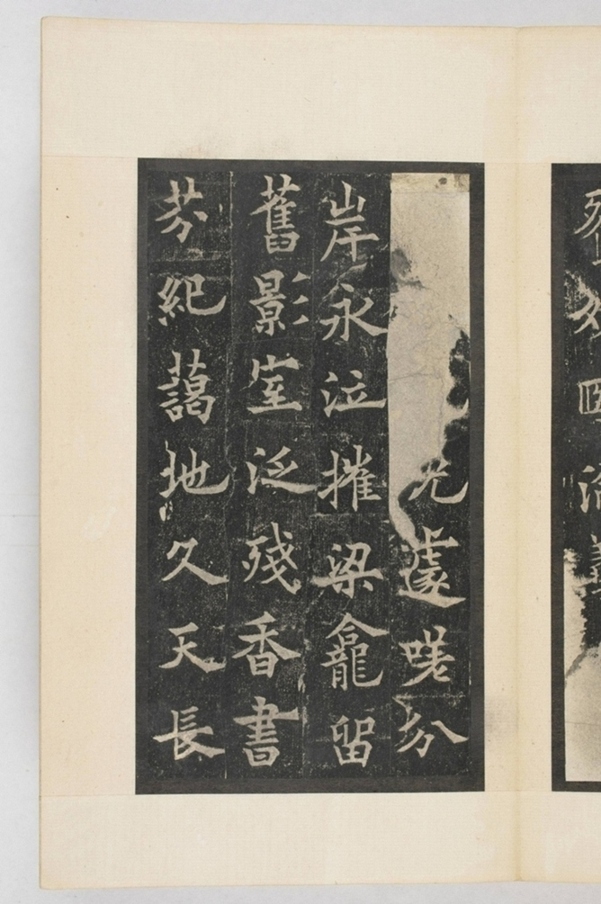 光遽嗟分
岸永泣摧梁龕留
舊影室泛殘香書
芬紀藹地久天長